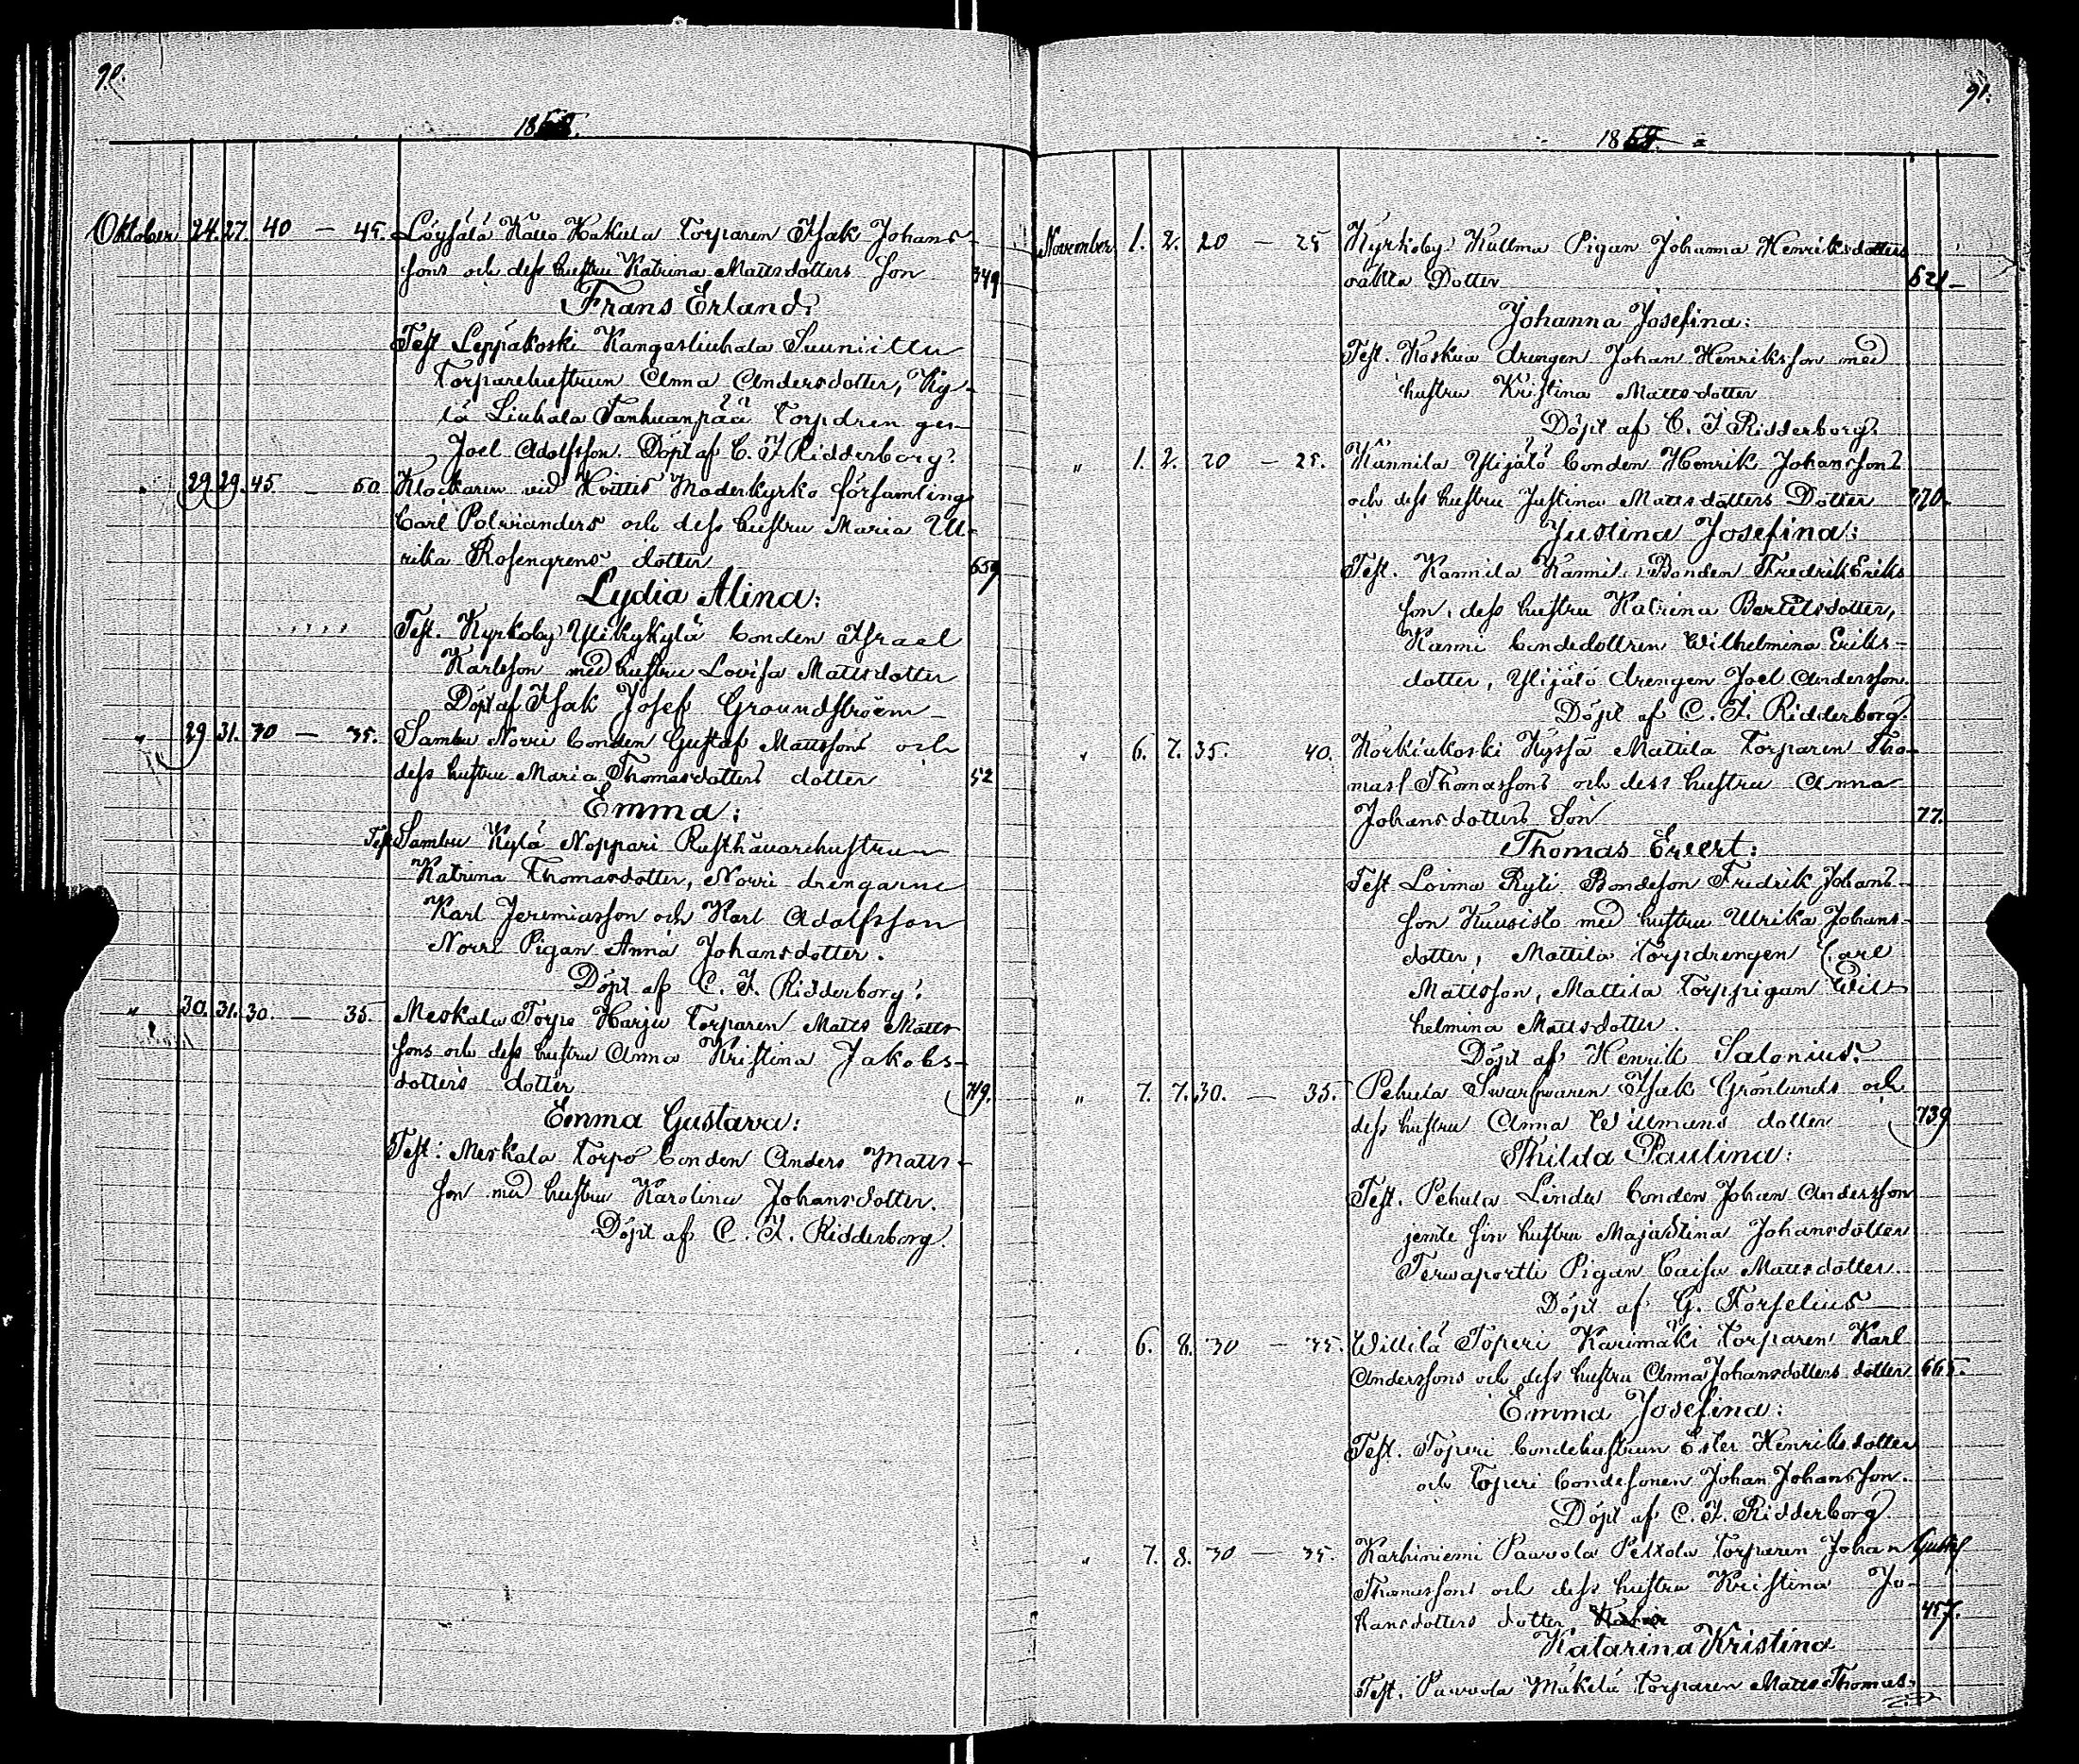 90.
1868.
Oktober 24. 27. 40 — 45. Löysälä Hakula Torparen Isak Johans-
sons och dess hustru Katrina Mattsdotters Son 349
Frans Erland:
Test Leppäkoski Kangasliuhala Suuniittu
Torparehustrun Anna Andersdotter, Ky-
lä Liuhala Tanhuanpää Torpdrengen
Joel Adolfsson. Döpt af C. F. Ridderborg.
" 29. 29. 45 — 50. Klockaren vid Hvittis Moderkyrko församling
Carl Polvianders och dess hustru Maria Ul-
rika Rosengrens dotter 659
Lydia Alina:
Test. Kyrkoby Ylikykylä bonden Israel
Karlsson med hustru Lovisa Mattsdotter
Döpt af Isak Josef Groundstroem
" 29 31. 30 — 35. Sambu Norri bonden Gustaf Mattssons och
dess hustru Maria Thomasdotters dotter 52
Emma:
Test Sambu Kylä Noppari Rusthåuarehustrun
Katrina Thomasdotter, Norri drengarne
Karl Jeremiasson och Karl Adolfsson
Norri Pigan Anna Johansdotter.
Döpt af C. F. Ridderborg.
" 30. 31. 30. — 35. Meskala Torpo Harju Torparen Matts Matts-
sons och dess hustru Anna Kristina Jakobs-
dotters dotter 719.
Emma Gustava:
Test: Meskala Torpo bonden Anders Matts-
son med hustru Karolina Johansdotter.
Döpt af C. F. Ridderborg.
91.
1868.
November 1. 2. 20 — 25 Kyrkoby Kullma Pigan Johanna Henriksdotters
oäkta Dotter 521
Johanna Josefina:
Test. Koskua drengen Johan Henriksson med
hustru Kristina Mattsdotter
Döpt af C. F. Ridderborg.
" 1. 2. 20 — 25. Kannila Ylijälö bonden Henrik Johanssons
och dess hustru Justina Mattsdotters Dotter 270.
Justina Josefina:
Test. Kannila Bonden Fredrik Eriks
son, dess hustru Katrina Bertilsdotter,
Kanni bondedottren Wilhelmina Eriks-
dotter, Ylijälö drengen Joel Andersson.
Döpt af C. F. Ridderborg.
" 6. 7. 35. 40. Korkiakoski Kyssä Mattila Torparen Tho-
mas Thomassons och dess hustru Anna
Johansdotters Son 77.
Thomas Evert:
Test Loima Ryli Bondeson Fredrik Johans-
son Kuusisto med hustru Ulrika Johans-
dotter, Mattila Torpdrengen Carl
Mattsson, Mattila Torppigan Wil-
helmina Mattsdotter.
Döpt af Henrik Salonius.
" 7. 7. 30. — 35. Pehula Swarfwaren Isak Grönlunds och
dess hustru Anna Willmans dotter 739
Thilda Paulina:
Test. Pehula Linda bonden Johan Andersson
jemte sin hustru Maja Stina Johansdotter
Terwaportti Pigan Caisa Mattsdotter.
Döpt af G. Forselius
" 6. 8. 30 — 35. Willilä Töperi Karimäki Torparen Karl
Anderssons och dess hustru Anna Johansdotters dotter 665.
Emma Josefina:
Test. Töperi bondehustrun Ester Henriksdotter
och Töperi bondesonen Johan Johansson.
Döpt af C. F. Ridderborg.
" 7. 8. 30 — 35. Karhiniemi Pawola Peltola Torparen Johan Gustaf
Thomassons och dess hustru Kristina Jo-
hansdotters dotter 457.
Katarina Kristina
Test. Pawola Mäkelä Torparen Matts Thomas-